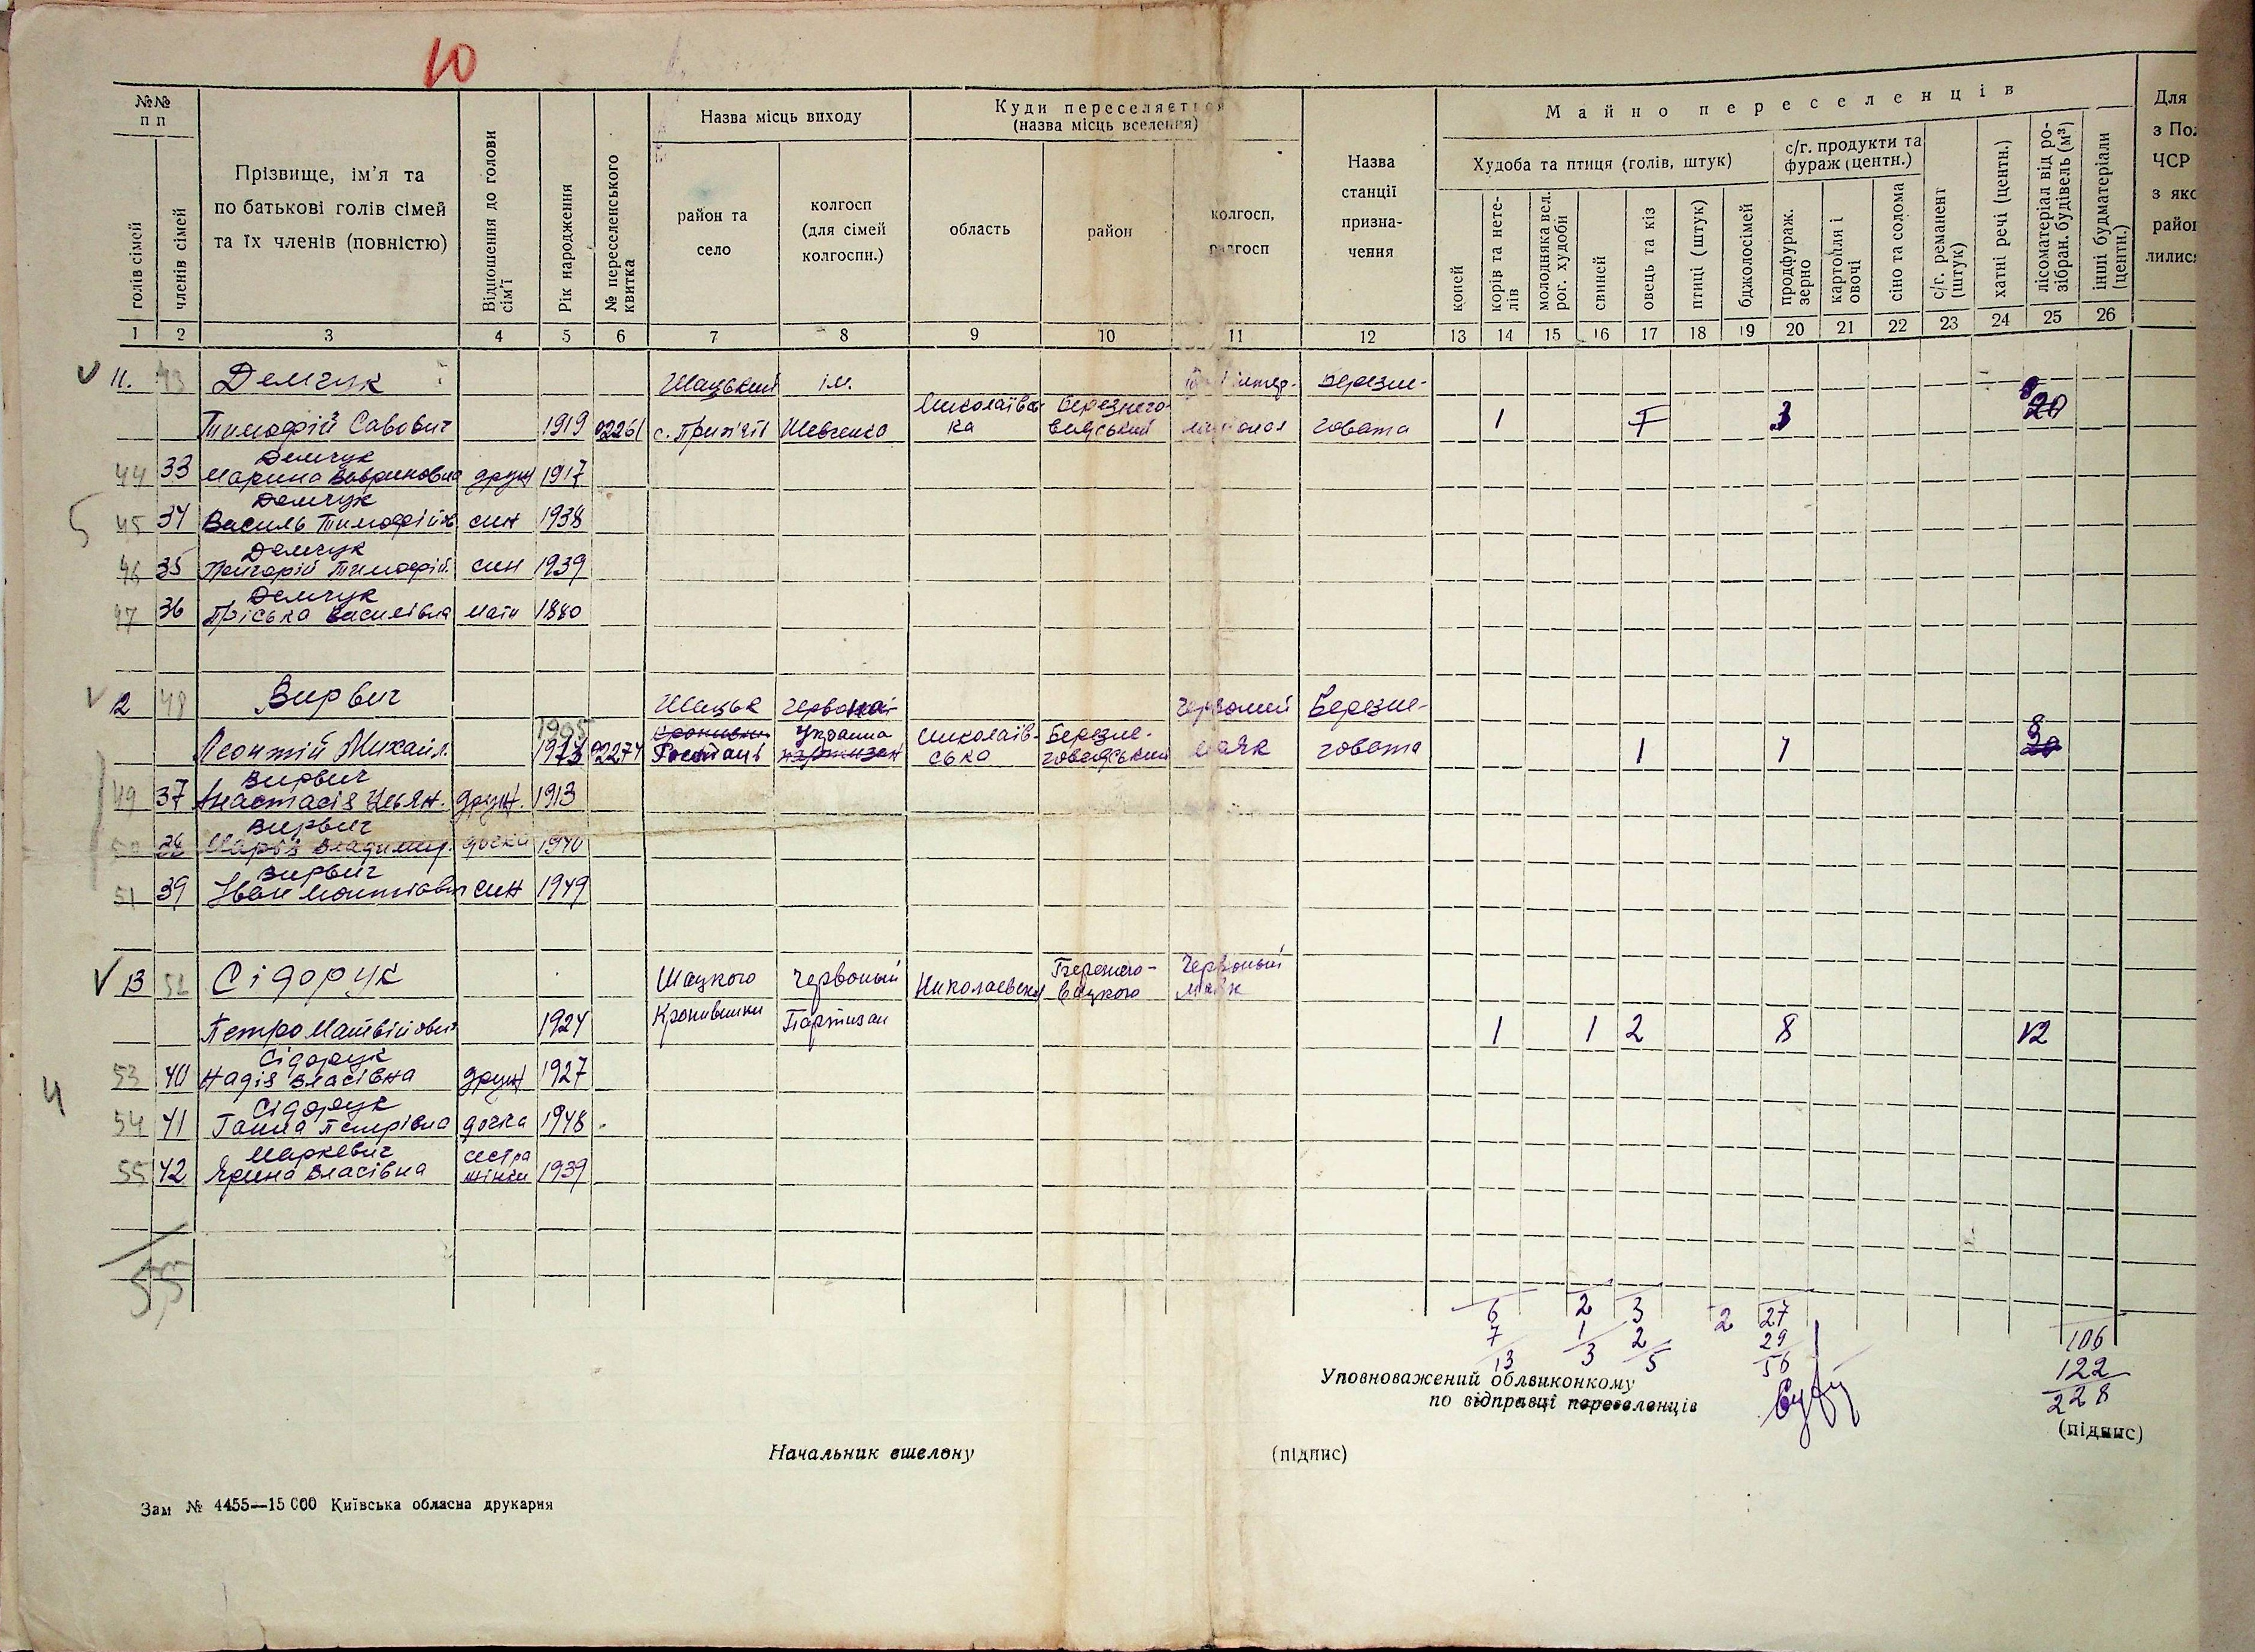 10
№№ п п
голів сімей
членів сімей
Прізвище, ім'я та по батькові голів сімей та їх членів (повністю)
Відношення до голови сім'ї
Рік народження
№ переселенського квитка
Назва місць виходу
район та село
колгосп (для сімей колгоспн.)
Куди переселяється (назва місць вселення)
область
район
колгосп, радгосп
Назва станції призна- чення
Майно переселенців
Худоба та птиця (голів, штук)
коней
корів та нете- лів
молодняка вел. рог. худоби
свиней
овець та кіз
птиці (штук)
бджолосімей
с/г. продукти та фураж (центн.)
продфураж. зерно
картопля і овочі
сіно та солома
с/г. реманент (штук)
хатні речі (центн.)
лісоматеріал від ро- зібран. будівель (м³)
інші будматеріали (центн.)
Для
з Пол
ЧСР
з яко
район
лилися
1 2 3 4 5 6 7 8 9 10 11 12 13 14 15 16 17 18 19 20 21 22 23 24 25 26
V 11. 43 Демчук Шацький ім. Березне-
Тимофій Савович 1919 02261 с. Прип'ять Шевченка Миколаївсь- ка Березнего- ватський говата 1 3 8 20
44 33 Демчук Марина Вавриновна друж 1917
5 45 34 Демчук Василь Тимофійов. син 1938
46 35 Демчук Григорій Тимофій. син 1939
47 36 Демчук Пріська Василівна мати 1880
V 12 48 Вирвич Шацьк Червона Червоний Березне-
Леонтій Михайл. 1905 1913 02274 Кропивники Ростані Україна партизан Миколаїв- ська Березне- говатський маяк говата 1 7 8 20
49 37 Вирвич Анастасія Ульян. друж. 1913
50 38 Вирвич Марія Владимир. дочка 1940
51 39 Вирвич Іван Леонтієвич син 1949
V 13 52 Сідорук Шацкого Червоный Николаевской Березнего- вацкого Червоный Маяк
Петро Матвійович 1924 Кропивники Партизан 1 1 2 8 12
53 40 Сідорук Надія Власівна друж 1927
4
54 41 Сідорук Ганна Петрівна дочка 1948
55 42 Маркевич Ярина Власівна сестра жінки 1939
55
6 2 3 2 27 106
7 1 2 29 122
13 3 5 56 228
Уповноважений облвиконкому
по відправці переселенців
(підпис)
Начальник ешелону (підпис)
Зам № 4455—15 000 Київська обласна друкарня